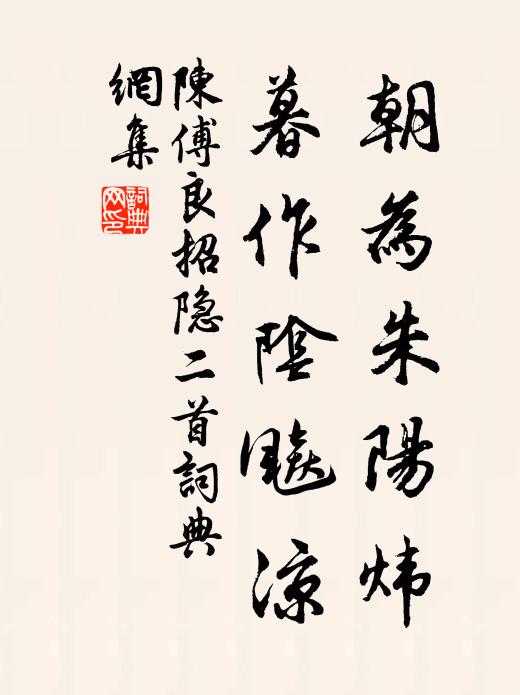 朝為朱陽煒
暮作陰飈涼
陳傅良招隐二首詞典
網集
詞典網印